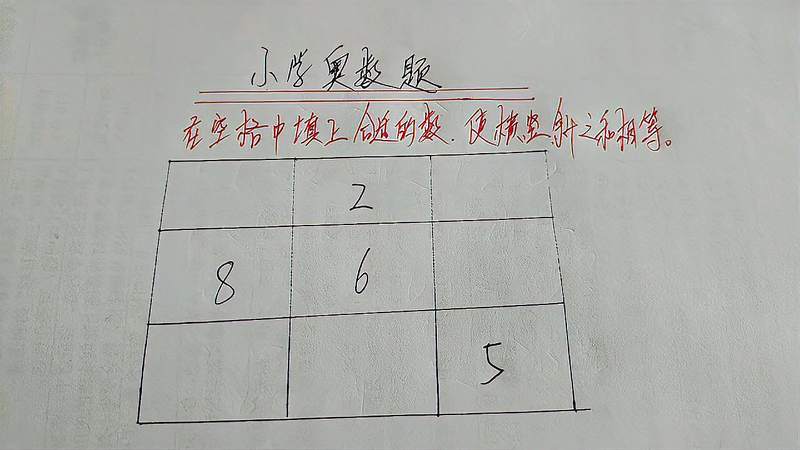 小学奥数题
在空格中填上合适的数,使横竖斜之和相等。
2
8 6
5